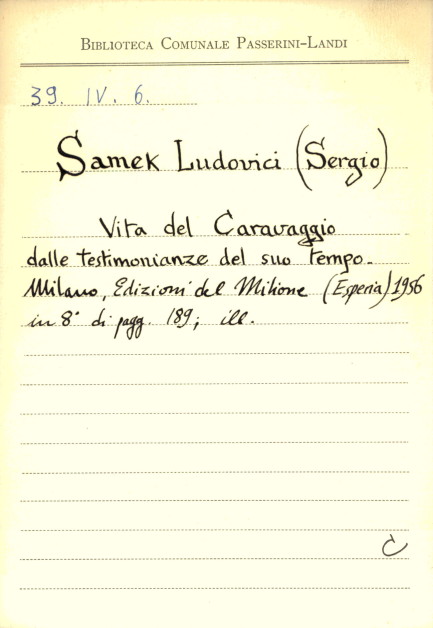 BIBLIOTECA COMUNALE PASSERINI-LANDI
39. IV. 6.
Samek Ludovici (Sergio)
Vita del Caravaggio
dalle testimonianze del suo tempo.
Milano, Edizioni del Milione (Esperia) 1956
in 8° di pagg. 189; ill.
C